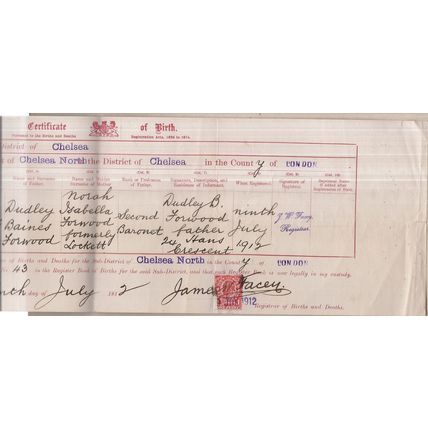 Certificate of Birth.
Pursuant to the Births and Deaths Registration Acts, 1836 to 1874.
District of Chelsea
of Chelsea North in the District of Chelsea in the County of LONDON
Name and Surname of Father. Name and Maiden Surname of Mother. Rank or Profession of Father. Signature, Description, and Residence of Informant. When Registered. Signature of Registrar. Baptismal Name if added after Registration of Birth.
Norah Dudley B.
Dudley Isabella Second Forwood ninth J. W. Facey
Baines Forwood Baronet father July Registrar
Forwood formerly 24 Hans 1912
Lockett Crescent
of Births and Deaths for the Sub-District of Chelsea North in the County LONDON
No. 43 in the Register Book of Births for the said Sub-District, and that such Register Book is now legally in my custody.
day of July 1912 James W. Facey.
1912
Registrar of Births and Deaths.